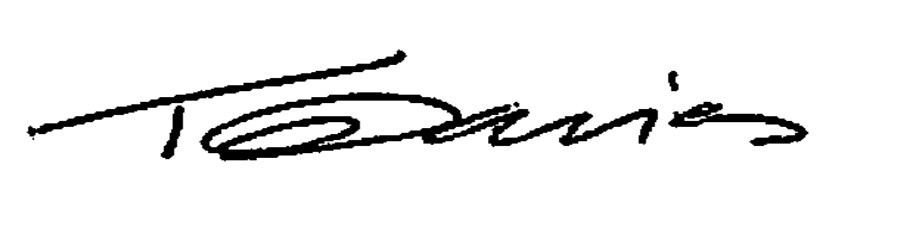 T Davies